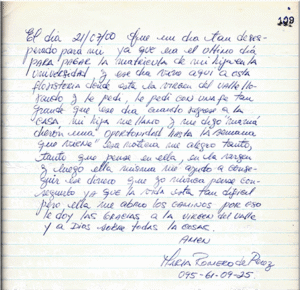 109
El día 21/07/00 fue un día tan deses-
perado para mi ya que era el ultimo día
para pagar la matricula de mi hija en la
universidad y ese día vine aquí a esta
donde está la virgen del valle llo-
rando y le pedi, le pedi con una fe tan
grande que ese día cuando regrese a la
casa mi hija me llamo y me dijo mamá
dieron una oportunidad hasta la semana
que viene eso me alegro tanto,
tanto que pense en ella, en la virgen
y luego ella misma me ayudo a conse-
guir un dinero que yo nunca pense con-
seguirlo ya que la vida esta tan dificil
pero ella me abrio los caminos por eso
le doy las gracias a la virgen del valle
y a Dios sobre todas las cosas.
Amen
Romero de Perez
095-61-09-25.